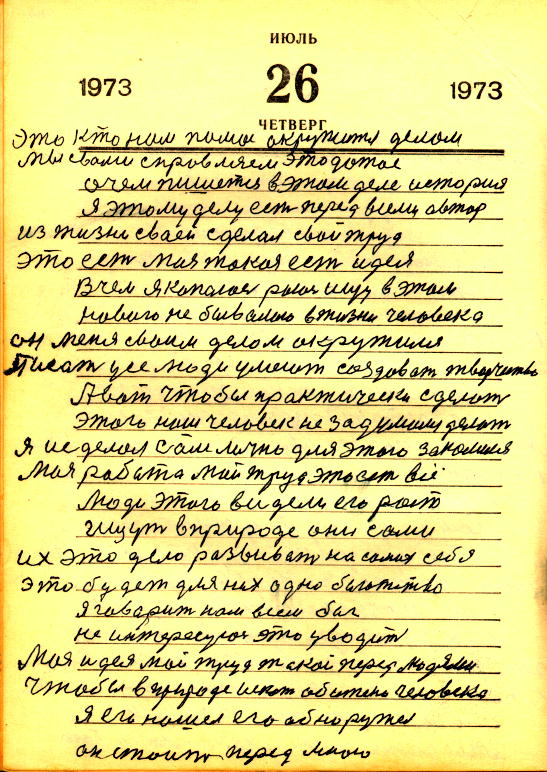 ИЮЛЬ
1973 26 1973
ЧЕТВЕРГ
Это кто нам помог окружится делом
мы свами справляем это
о чем пишется в этом деле история
я этому делу есть перед всеми автор
из жизни сваей сделал свой труд
это есть мая такая есть идея
В чем я капаюсь ищу в этом
нового не бывалого в жизни человека
он меня своим делом окружил
Писат усе люди умеют создават творчество
А вот чтобы практически сделат
этого наш человек не задумал делат
я ие делал сам лично для этого закалился
Мая работа мой труд это ест всё
люди этого видели его рост
ищут в природе они сами
их это дело развиват на самих себя
это будет для них одно багатство
я гаварит нам всем бог
не интересуюсь это уводит
Мая идея мой труд такой перед людями
Чтобы в природе искат человека
Я его нашел его обноружил
он стоит перед мною